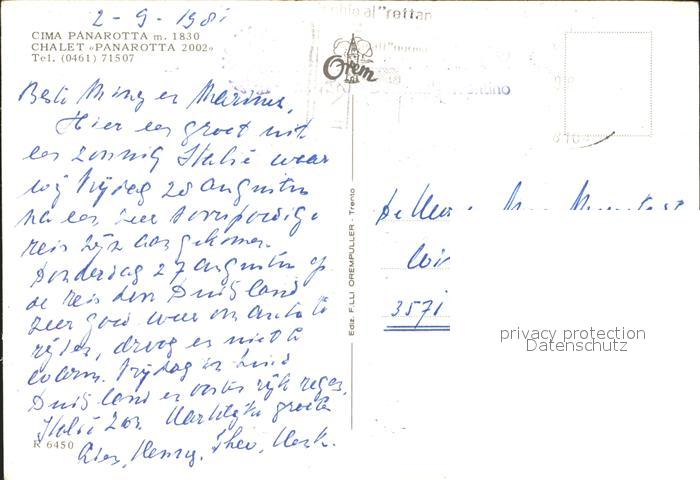 2-9-1981
CIMA PANAROTTA m. 1830
CHALET «PANAROTTA 2002»
Tel. (0461) 71507
Beste Miny en Marinus,
Hier een groet uit
een zonnig Italië waar
wij Vrijdag 28 augustus
na een zeer voorspoedige
reis zijn aangekomen.
Donderdag 27 augustus op
de reis door Duitsland
zeer goed weer om auto te
rijden, droog en niet te
warm. Vrijdag in Zuid
Duitsland en Oostenrijk regen,
Italië zon. Hartelijke groeten
Henny, Theo, Henk.
R 6450
Orem
Ediz. F.LLI OREMPULLER - Trento
De
3571
privacy protection
Datenschutz